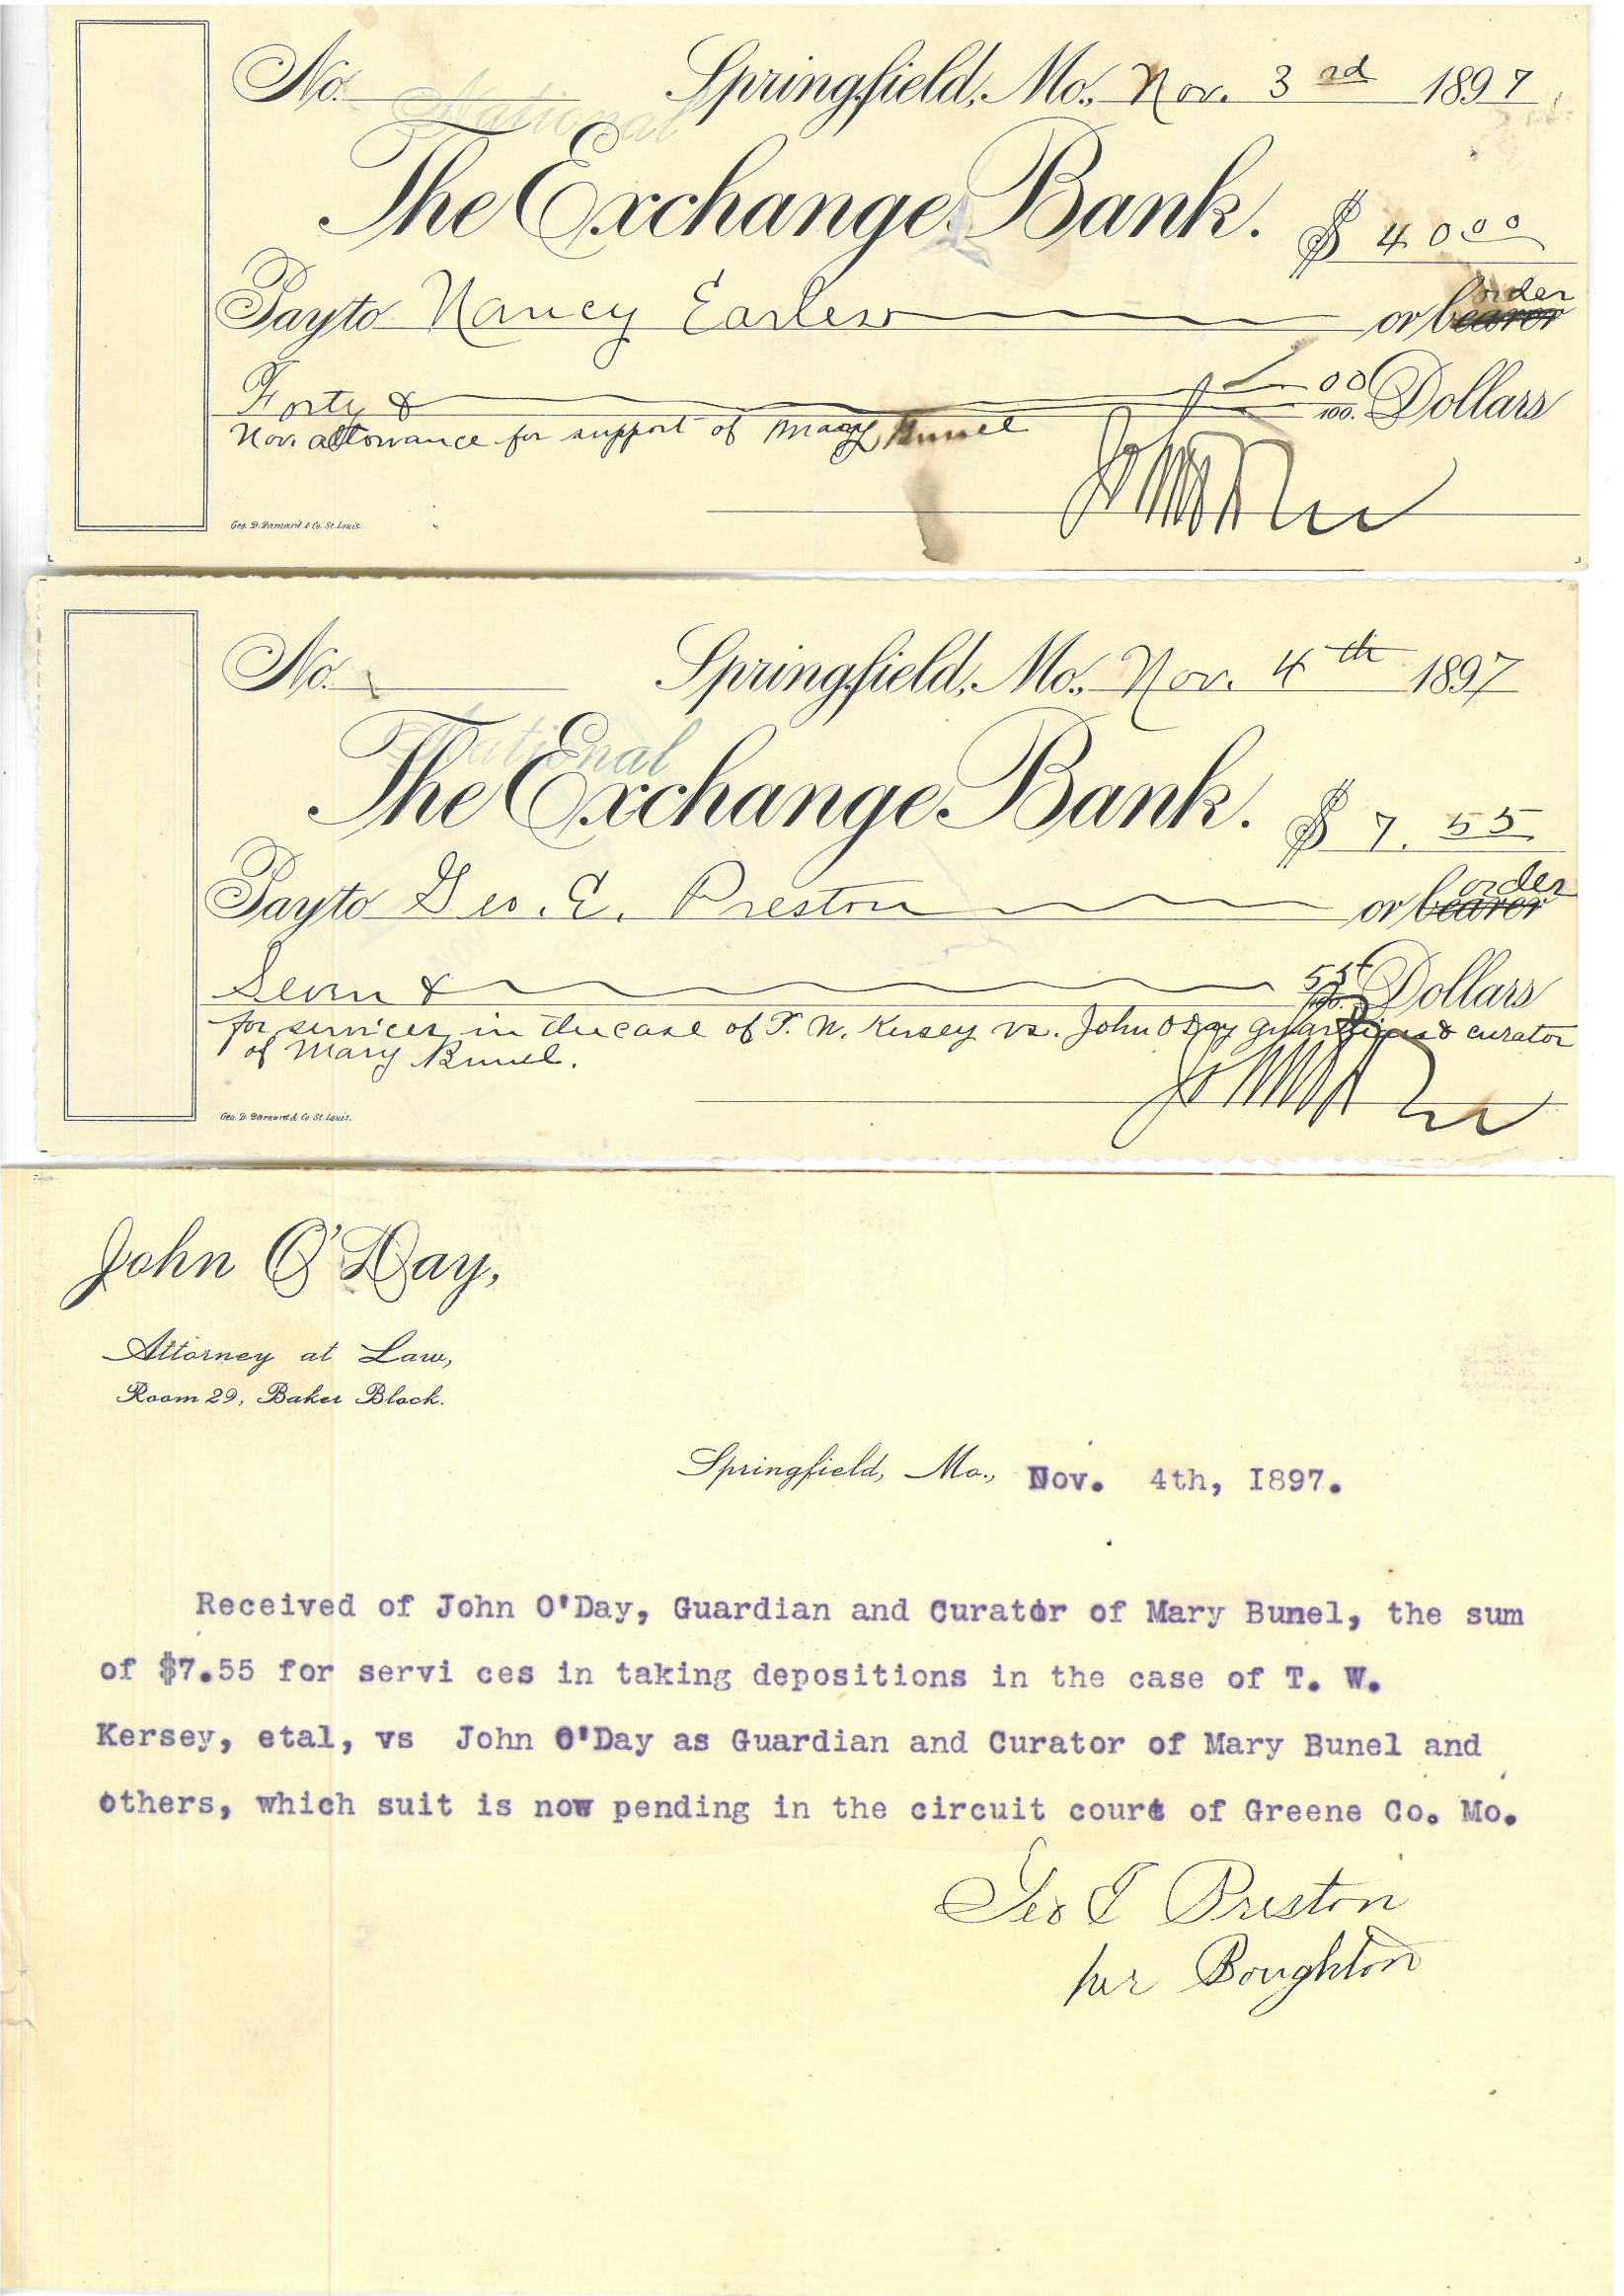 No. Springfield, Mo., Nov. 3rd 1897
National
The Exchange Bank. $ 40 00
order
Pay to Nancy or bearer
Forty & 00/100. Dollars
Nov. allowance for support of Mary Bunel
Geo. D. Barnard & Co. St. Louis.
No. Springfield, Mo., Nov. 4th 1897
National
The Exchange Bank. $ 7. 55
order
Pay to Geo. E. Preston or bearer
Seven & 55/100 Dollars
for services in the case of T. W. Kersey vs. John O Day guardian & curator
of Mary Bunel.
Geo. D. Barnard & Co. St. Louis.
John O'Day,
Attorney at Law,
Room 29, Baker Block.
Springfield, Mo., Nov. 4th, I897.
Received of John O'Day, Guardian and Curator of Mary Bunel, the sum
of $7.55 for servi ces in taking depositions in the case of T. W.
Kersey, etal, vs John O'Day as Guardian and Curator of Mary Bunel and
others, which suit is now pending in the circuit court of Greene Co. Mo.
Geo E Preston
per Boughton